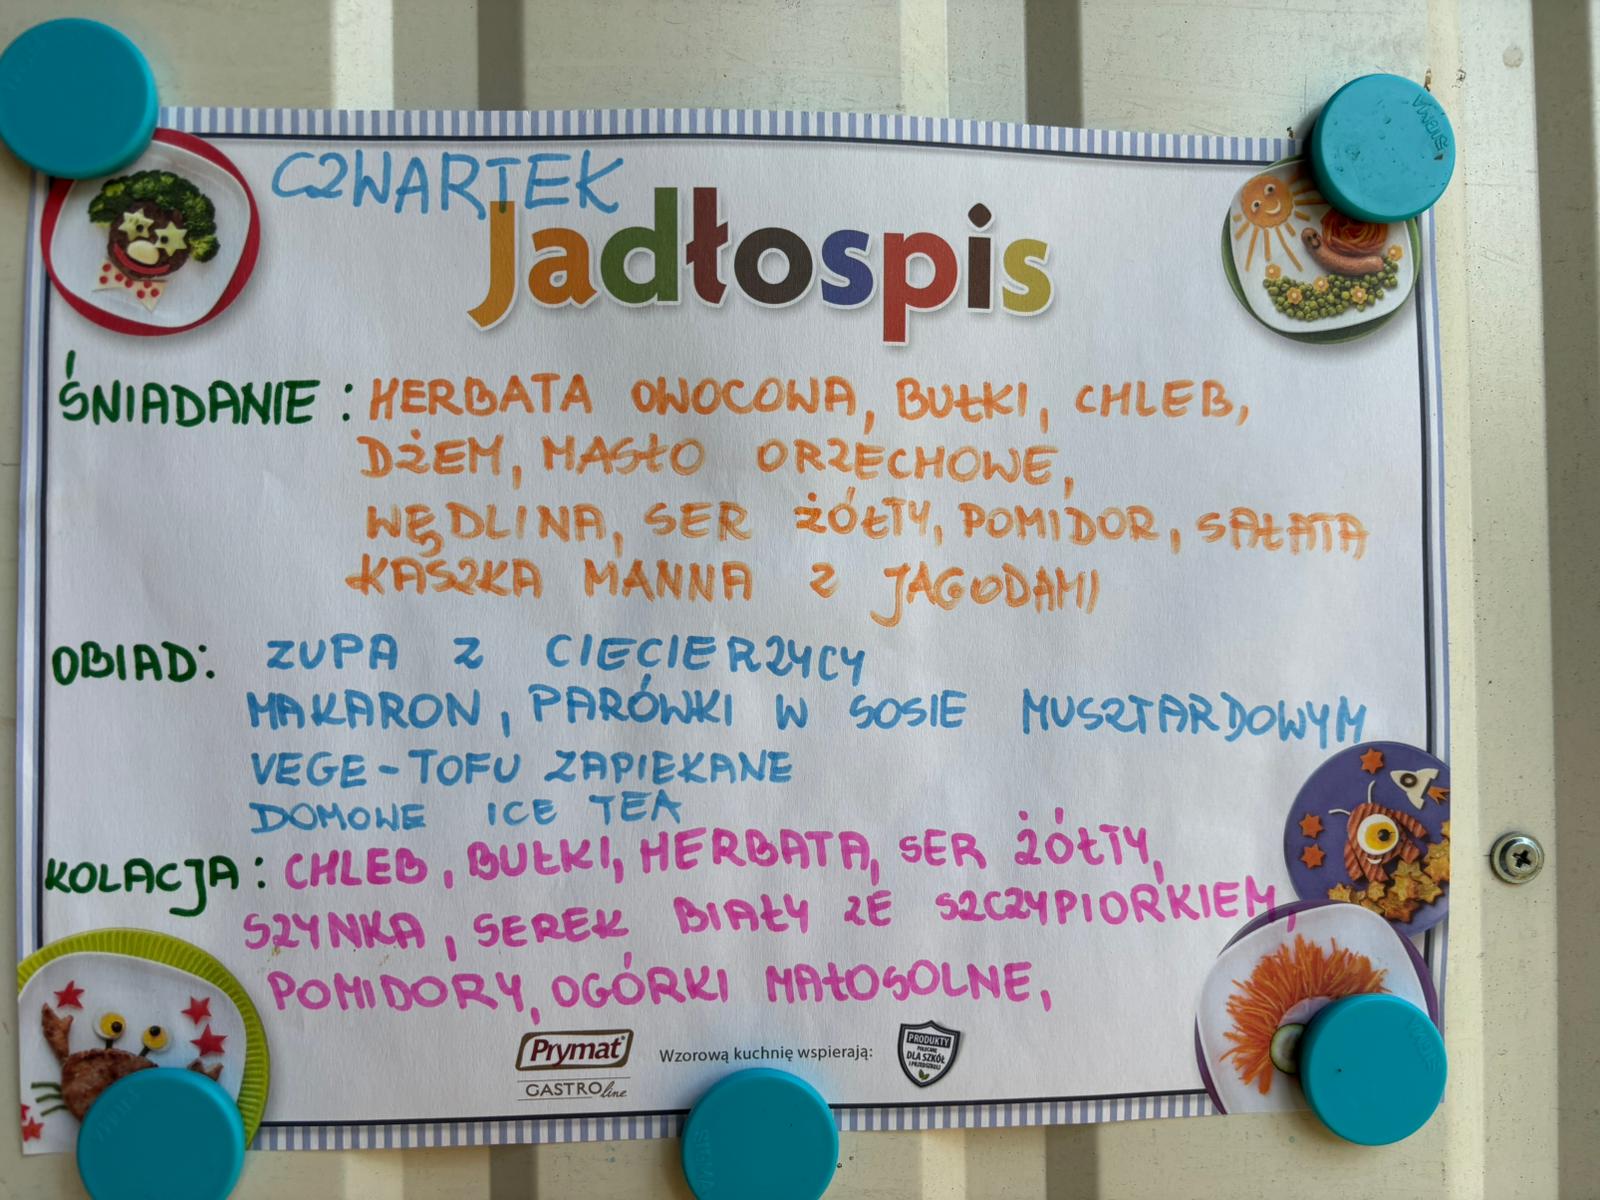 CZWARTEK
Jadłospis
ŚNIADANIE: HERBATA OWOCOWA, BUŁKI, CHLEB,
DŻEM, MASŁO ORZECHOWE,
WĘDLINA, SER ŻÓŁTY, POMIDOR, SAŁATA
KASZKA MANNA Z JAGODAMI
OBIAD: ZUPA Z CIECIERZYCY
MAKARON, PARÓWKI W SOSIE MUSZTARDOWYM
VEGE-TOFU ZAPIEKANE
DOMOWE ICE TEA
KOLACJA: CHLEB, BUŁKI, HERBATA, SER ŻÓŁTY,
SZYNKA, SEREK BIAŁY ZE SZCZYPIORKIEM,
POMIDORY, OGÓRKI MAŁOSOLNE,
Prymat
GASTROline
Wzorową kuchnię wspierają:
PRODUKTY
POLECANE
DLA SZKÓŁ
I PRZEDSZKOLI
SIGMA
SIGMA